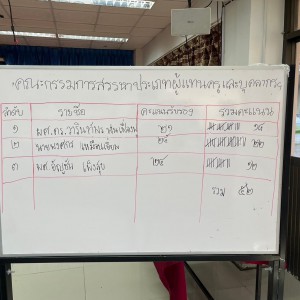 คณะกรรมการสรรหาประเภทผู้แทนครูและบุคลากรฯ
ลำดับ รายชื่อ คะแนนรับรอง รวมคะแนน
๑ ผศ.ดร. ๒๑ ๑๘
๒ นายพรศักดิ์ เหมือนเขียน ๒๔ ๒๒
๓ ผศ.อัญชัน เพ็งสุข ๒๔ ๑๒
รวม ๕๒